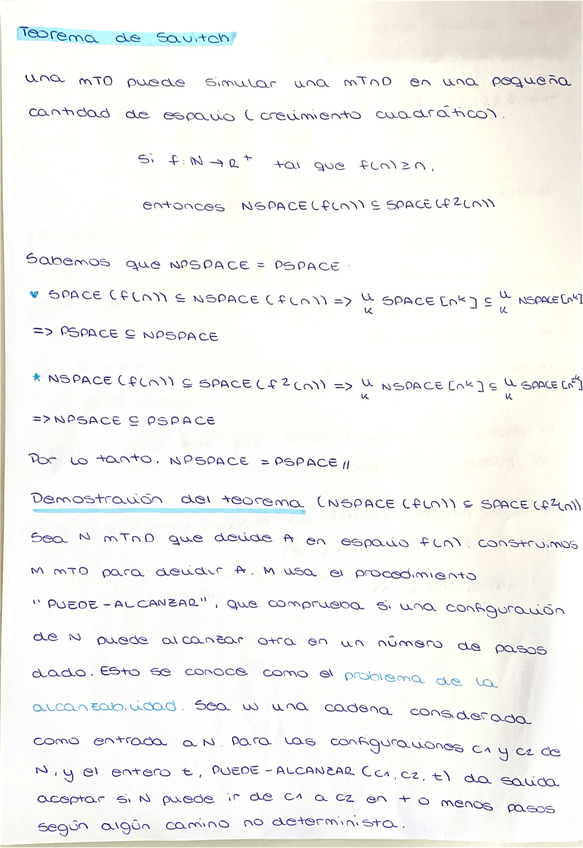 Teorema de Savitch
una mTD puede simular una mTnD en una pequeña
cantidad de espacio (crecimiento cuadrático).
Si f: N → R⁺ tal que f(n) ≥ n,
entonces NSPACE(f(n)) ⊆ SPACE(f²(n))
Sabemos que NPSPACE = PSPACE:
♥ SPACE(f(n)) ⊆ NSPACE(f(n)) => ∪ₖ SPACE[nᵏ] ⊆ ∪ₖ NSPACE[nᵏ]
=> PSPACE ⊆ NPSPACE
* NSPACE(f(n)) ⊆ SPACE(f²(n)) => ∪ₖ NSPACE[nᵏ] ⊆ ∪ₖ SPACE[n²ᵏ]
=> NPSACE ⊆ PSPACE
Por lo tanto, NPSPACE = PSPACE //
Demostración del teorema (NSPACE(f(n)) ⊆ SPACE(f²(n))
Sea N mTnD que decide A en espacio f(n). construimos
M mTD para decidir A. M usa el procedimiento
"PUEDE-ALCANZAR", que comprueba si una configuración
de N puede alcanzar otra en un número de pasos
dado. Esto se conoce como el problema de la
alcanzabilidad. Sea w una cadena considerada
como entrada a N. Para las configuraciones c1 y c2 de
N, y el entero t, PUEDE-ALCANZAR (c1, c2, t) da salida
aceptar si N puede ir de c1 a c2 en t o menos pasos
según algún camino no determinista.